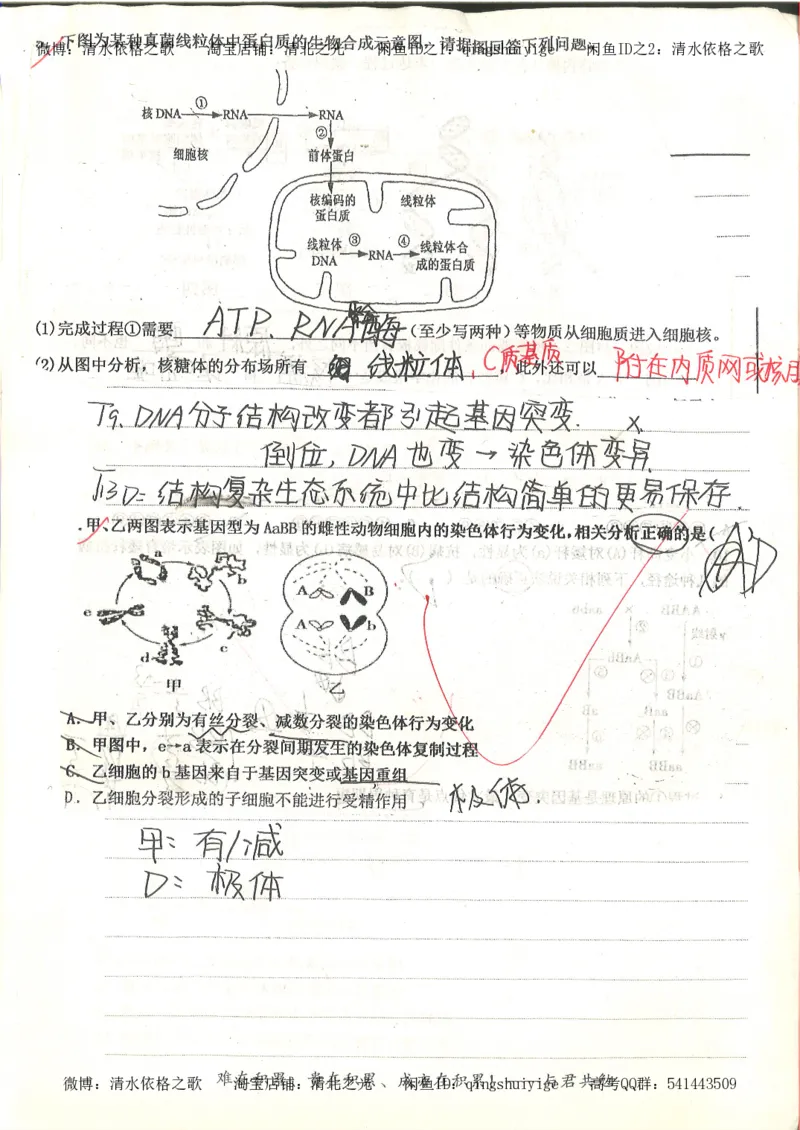 下图为某种真菌线粒体中蛋白质的生物合成示意图，请据图回答下列问题。
微博：清水依格之歌 淘宝店铺：清北之光 闲鱼ID之1：qingshuiyige 闲鱼ID之2：清水依格之歌
核DNA ① RNA RNA
②
细胞核 前体蛋白
核编码的蛋白质 线粒体
线粒体DNA ③ RNA ④ 线粒体合成的蛋白质
(1)完成过程①需要 ATP、RNA聚合酶 (至少写两种)等物质从细胞质进入细胞核。
(2)从图中分析，核糖体的分布场所有 线粒体、C质基质，此外还可以 附在内质网或核月
T9. DNA分子结构改变都引起基因突变. ×
倒位，DNA也变→染色体变异
T13 D= 结构复杂生态系统中比结构简单的更易保存.
.甲、乙两图表示基因型为AaBB的雌性动物细胞内的染色体行为变化,相关分析正确的是( D
a
b
e
c
d
甲
A B
A b
乙
A. 甲、乙分别为有丝分裂、减数分裂的染色体行为变化
B. 甲图中，e→a表示在分裂间期发生的染色体复制过程
C. 乙细胞的b基因来自于基因突变或基因重组
D. 乙细胞分裂形成的子细胞不能进行受精作用 极体.
甲：有/减
D：极体
难在积累、贵在积累、成亦在积累！ 与君共勉
微博：清水依格之歌 淘宝店铺：清北之光 闲鱼ID：qingshuiyige 高考QQ群：541443509